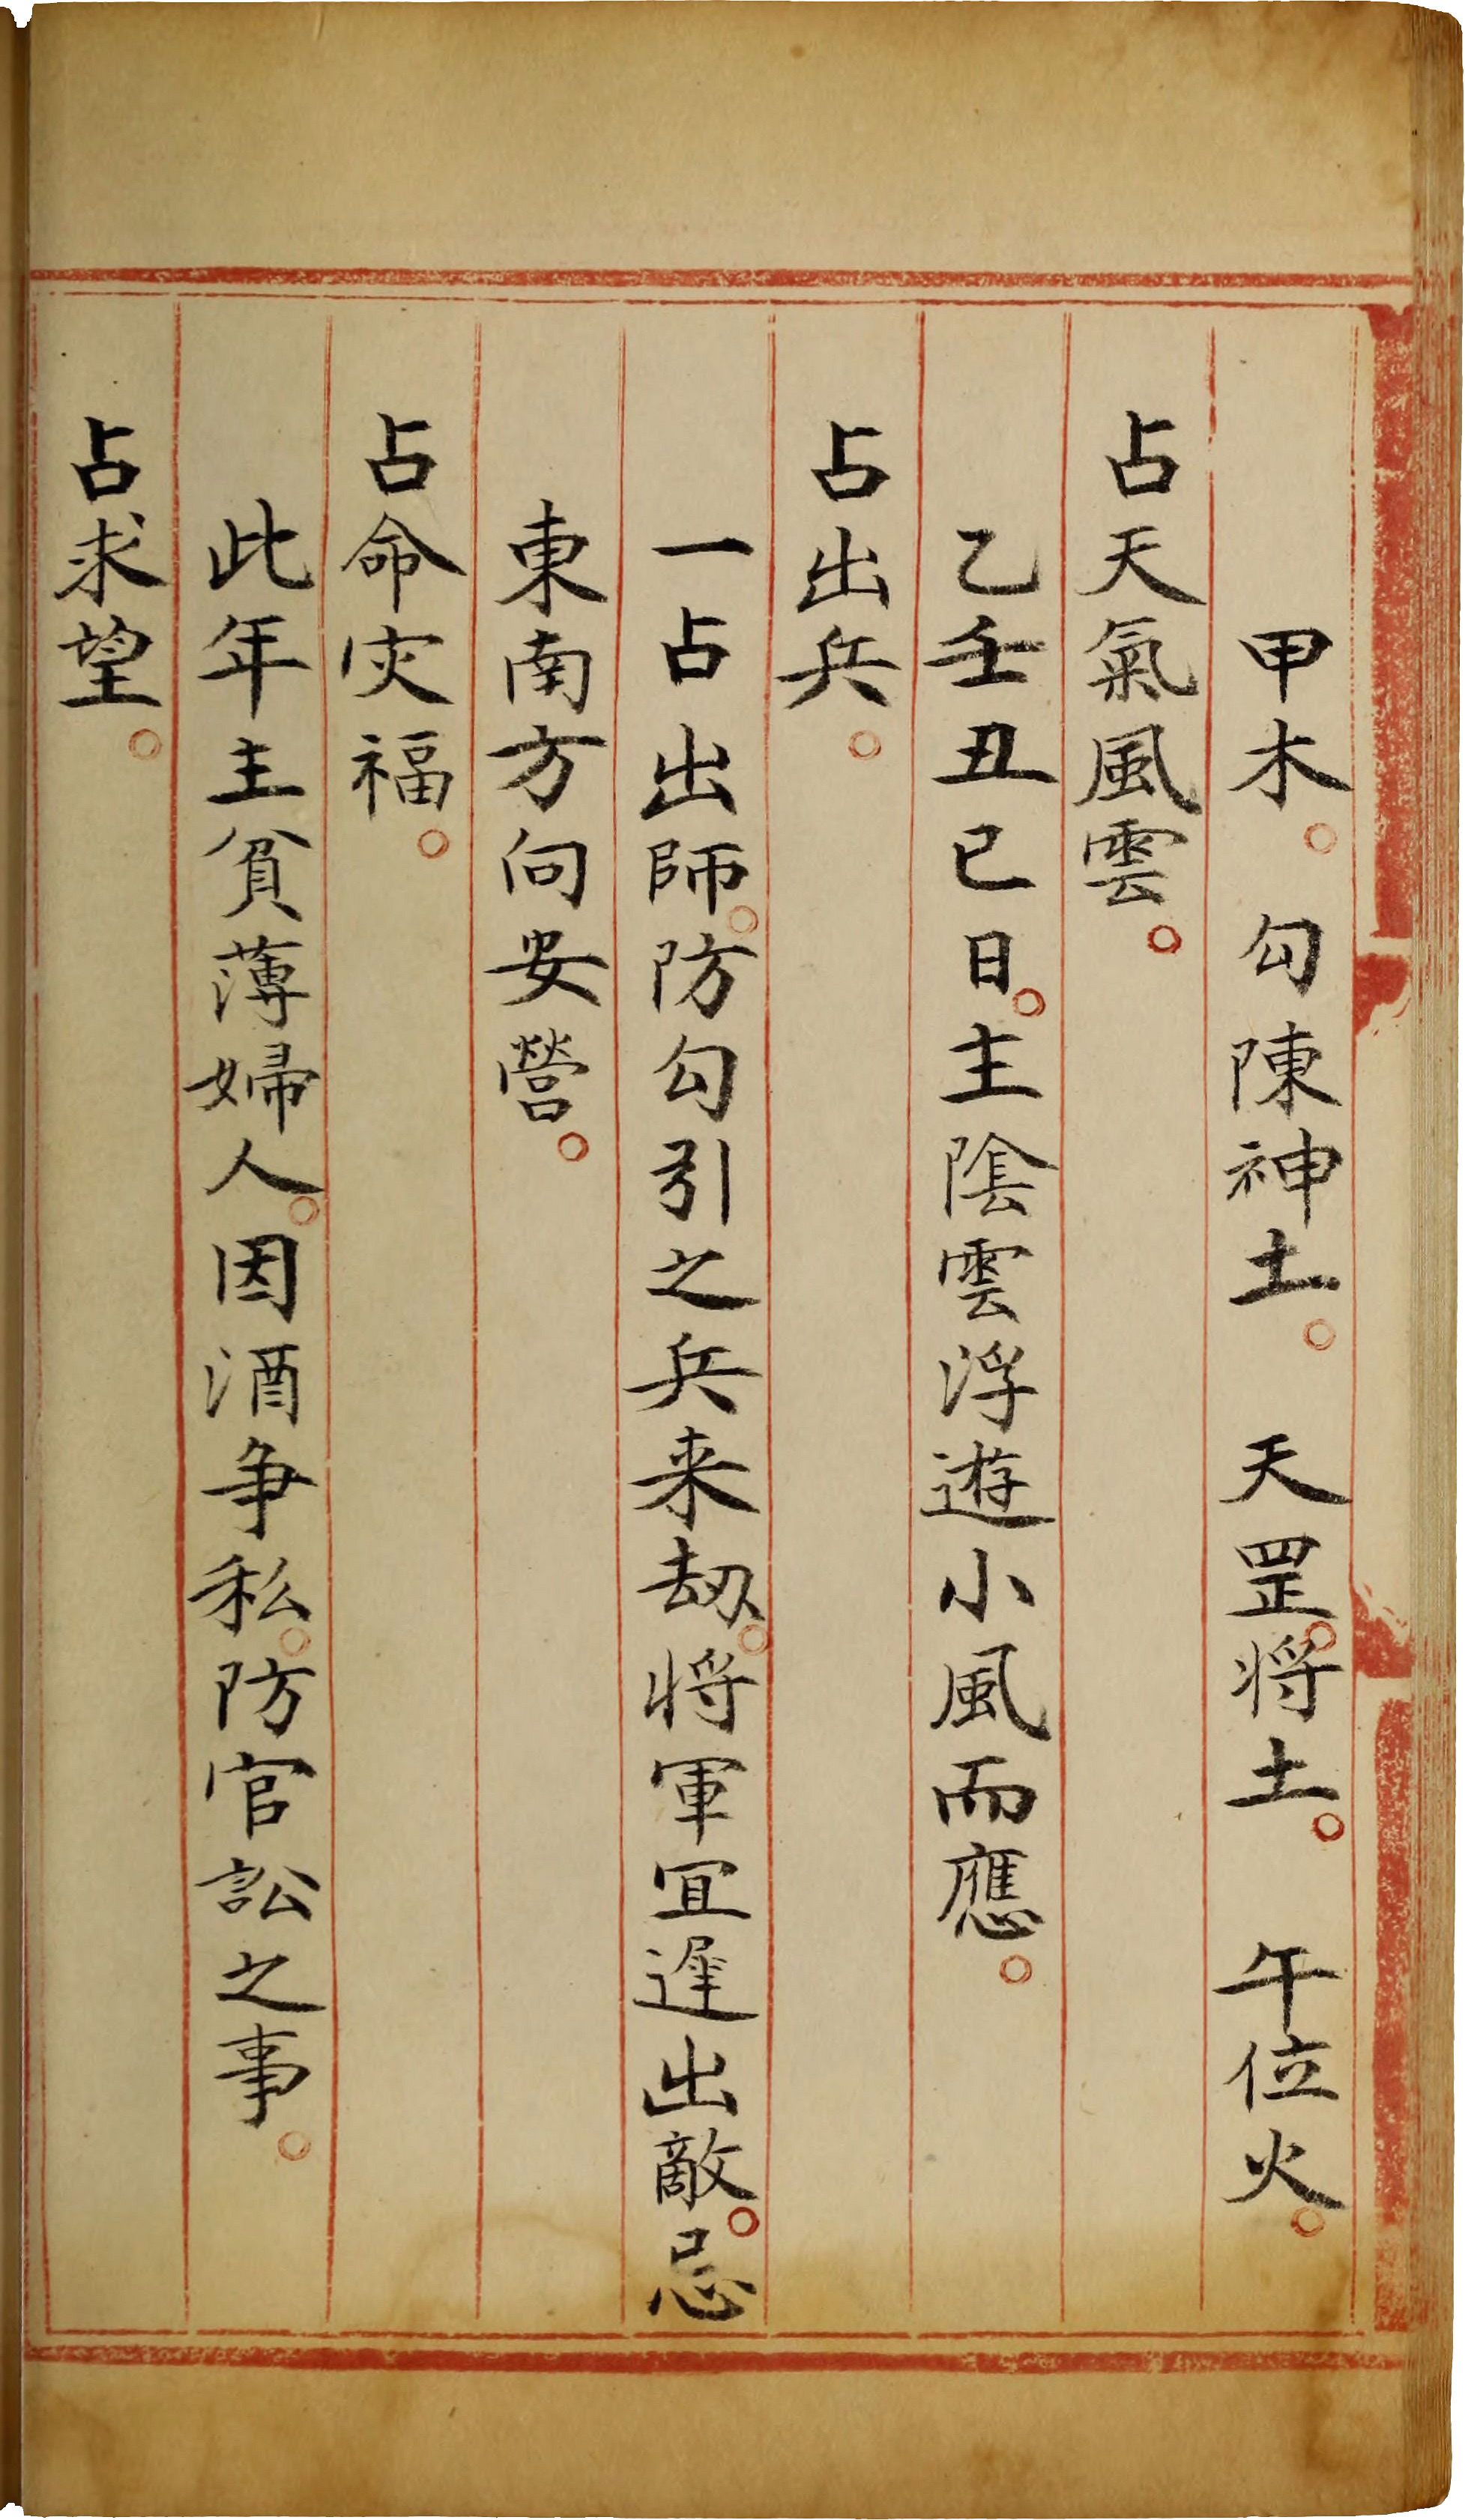 甲木。勾陳神土。天罡。将土。午位火。
占天氣風雲。
乙壬丑巳日。主隂雲浮遊小風而應。
占出兵。
一占出師。防勾引之兵来刼。将軍宜遲出敵。忌
東南方向安營。
占命灾福。
此年主貧薄婦人。因酒争私。防官訟之事。
占求望。